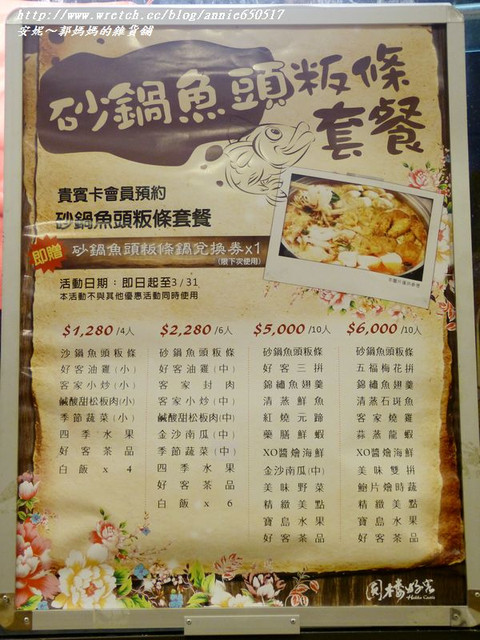 http://www.wretch.cc/blog/annie650517
安妮～郭媽媽的雜貨舖
砂鍋魚頭粄條
套餐
貴賓卡會員預約
砂鍋魚頭粄條套餐
即贈
砂鍋魚頭粄條鍋兌換券x1
(限下次使用)
活動日期：即日起至3/31
本活動不與其他優惠活動同時使用
$1,280/4人
沙鍋魚頭粄條
好客油雞(小)
客家小炒(小)
鹹酸甜松板肉(小)
季節蔬菜(小)
四季水果
好客茶品
白飯x4
$2,280/6人
砂鍋魚頭粄條
好客油雞(中)
客家封肉
客家小炒(中)
鹹酸甜松板肉(中)
金沙南瓜(中)
季節蔬菜(中)
四季水果
好客茶品
白飯x6
$5,000/10人
砂鍋魚頭粄條
好客三拼
錦繡魚翅羹
清蒸鮮魚
紅燒元蹄
藥膳鮮蝦
XO醬燴海鮮
金沙南瓜(中)
美味野菜
精緻美點
寶島水果
好客茶品
$6,000/10人
砂鍋魚頭粄條
五福梅花拼
錦繡魚翅羹
清蒸石斑魚
客家燒雞
蒜蒸龍蝦
XO醬燴海鮮
美味雙拼
鮑片燴時蔬
精緻美點
寶島水果
好客茶品